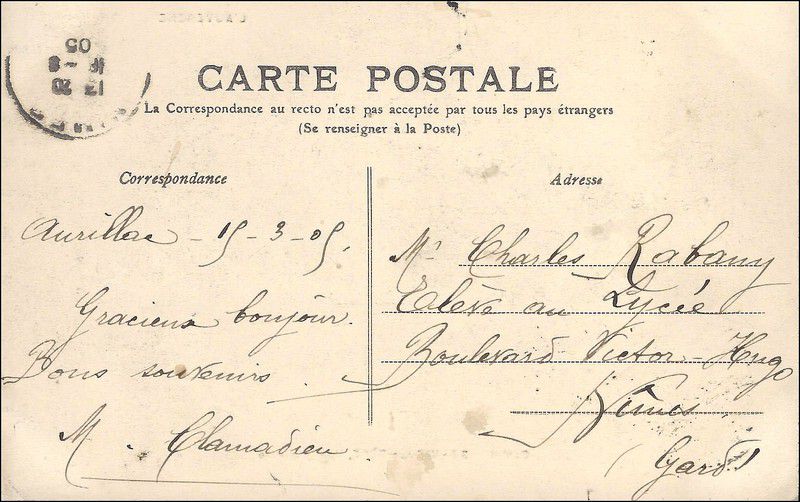 CARTE POSTALE
La Correspondance au recto n'est pas acceptée par tous les pays étrangers
(Se renseigner à la Poste)
Correspondance
Aurillac - 15-3-05.
Gracieux bonjour.
Bons souvenirs.
M. Clamadieu
Adresse
Mr Charles Rabany
Elève au Lycée
Boulevard Victor-Hugo
Nîmes.
(Gard)
05